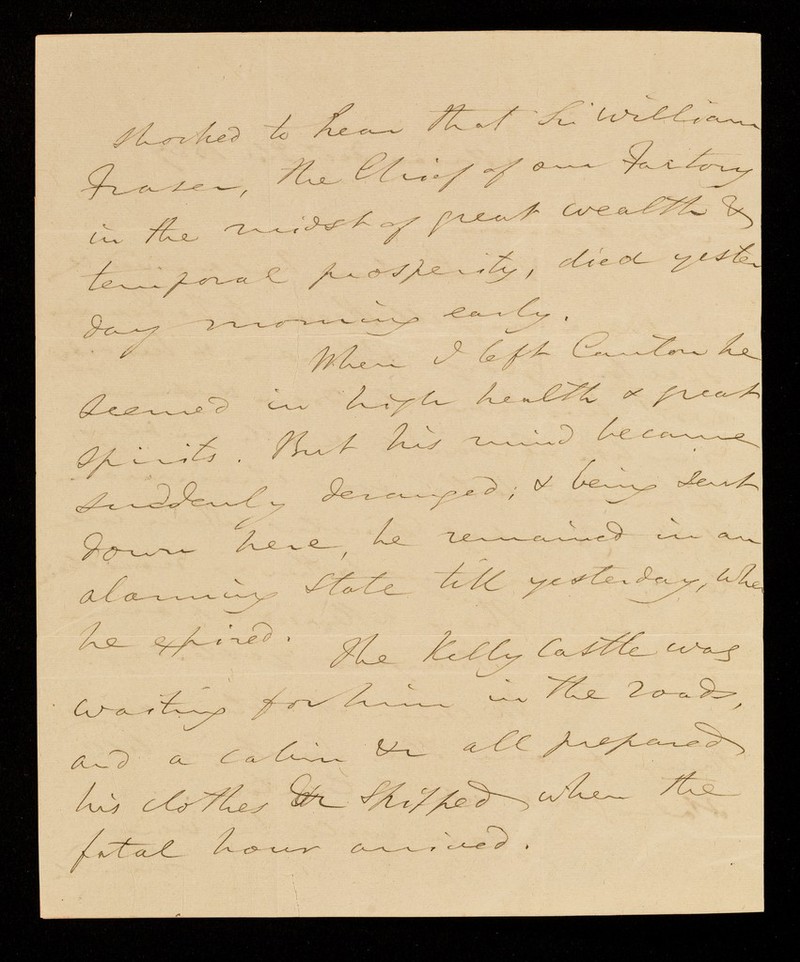 shocked to hear that Sir William
Fraser, the Chief of our Factory
in the midst of great wealth &
temporal prosperity, died yester
day morning early.
When I left Canton he
seemed in high health & great
spirits. But his mind became
suddenly deranged; & being sent
down here, he remained in an
alarming state till yesterday, when
he expired.
The Kelly Castle was
waiting for him in the roads,
and a cabin &c all prepared
his clothes &c shipped, when the
fatal hour arrived.